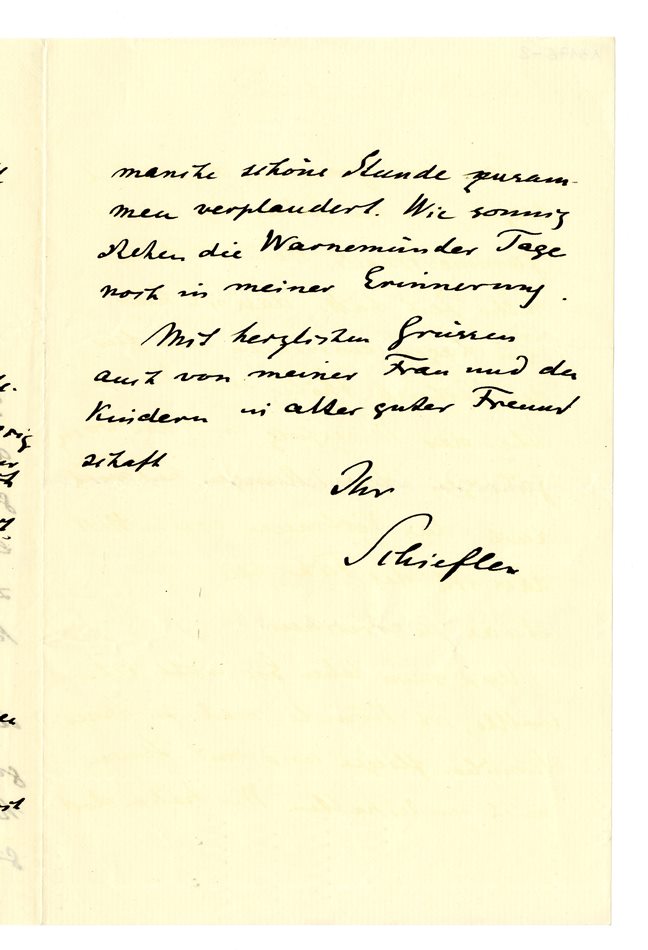 manche schöne Stunde zusam-
men verplaudert. Wie sonnig
stehen die Warnemünder Tage
noch in meiner Erinnerung.
Mit herzlichen Grüssen
auch von meiner Frau und den
Kindern in alter guter Freund
schaft
Ihr
Schiefler